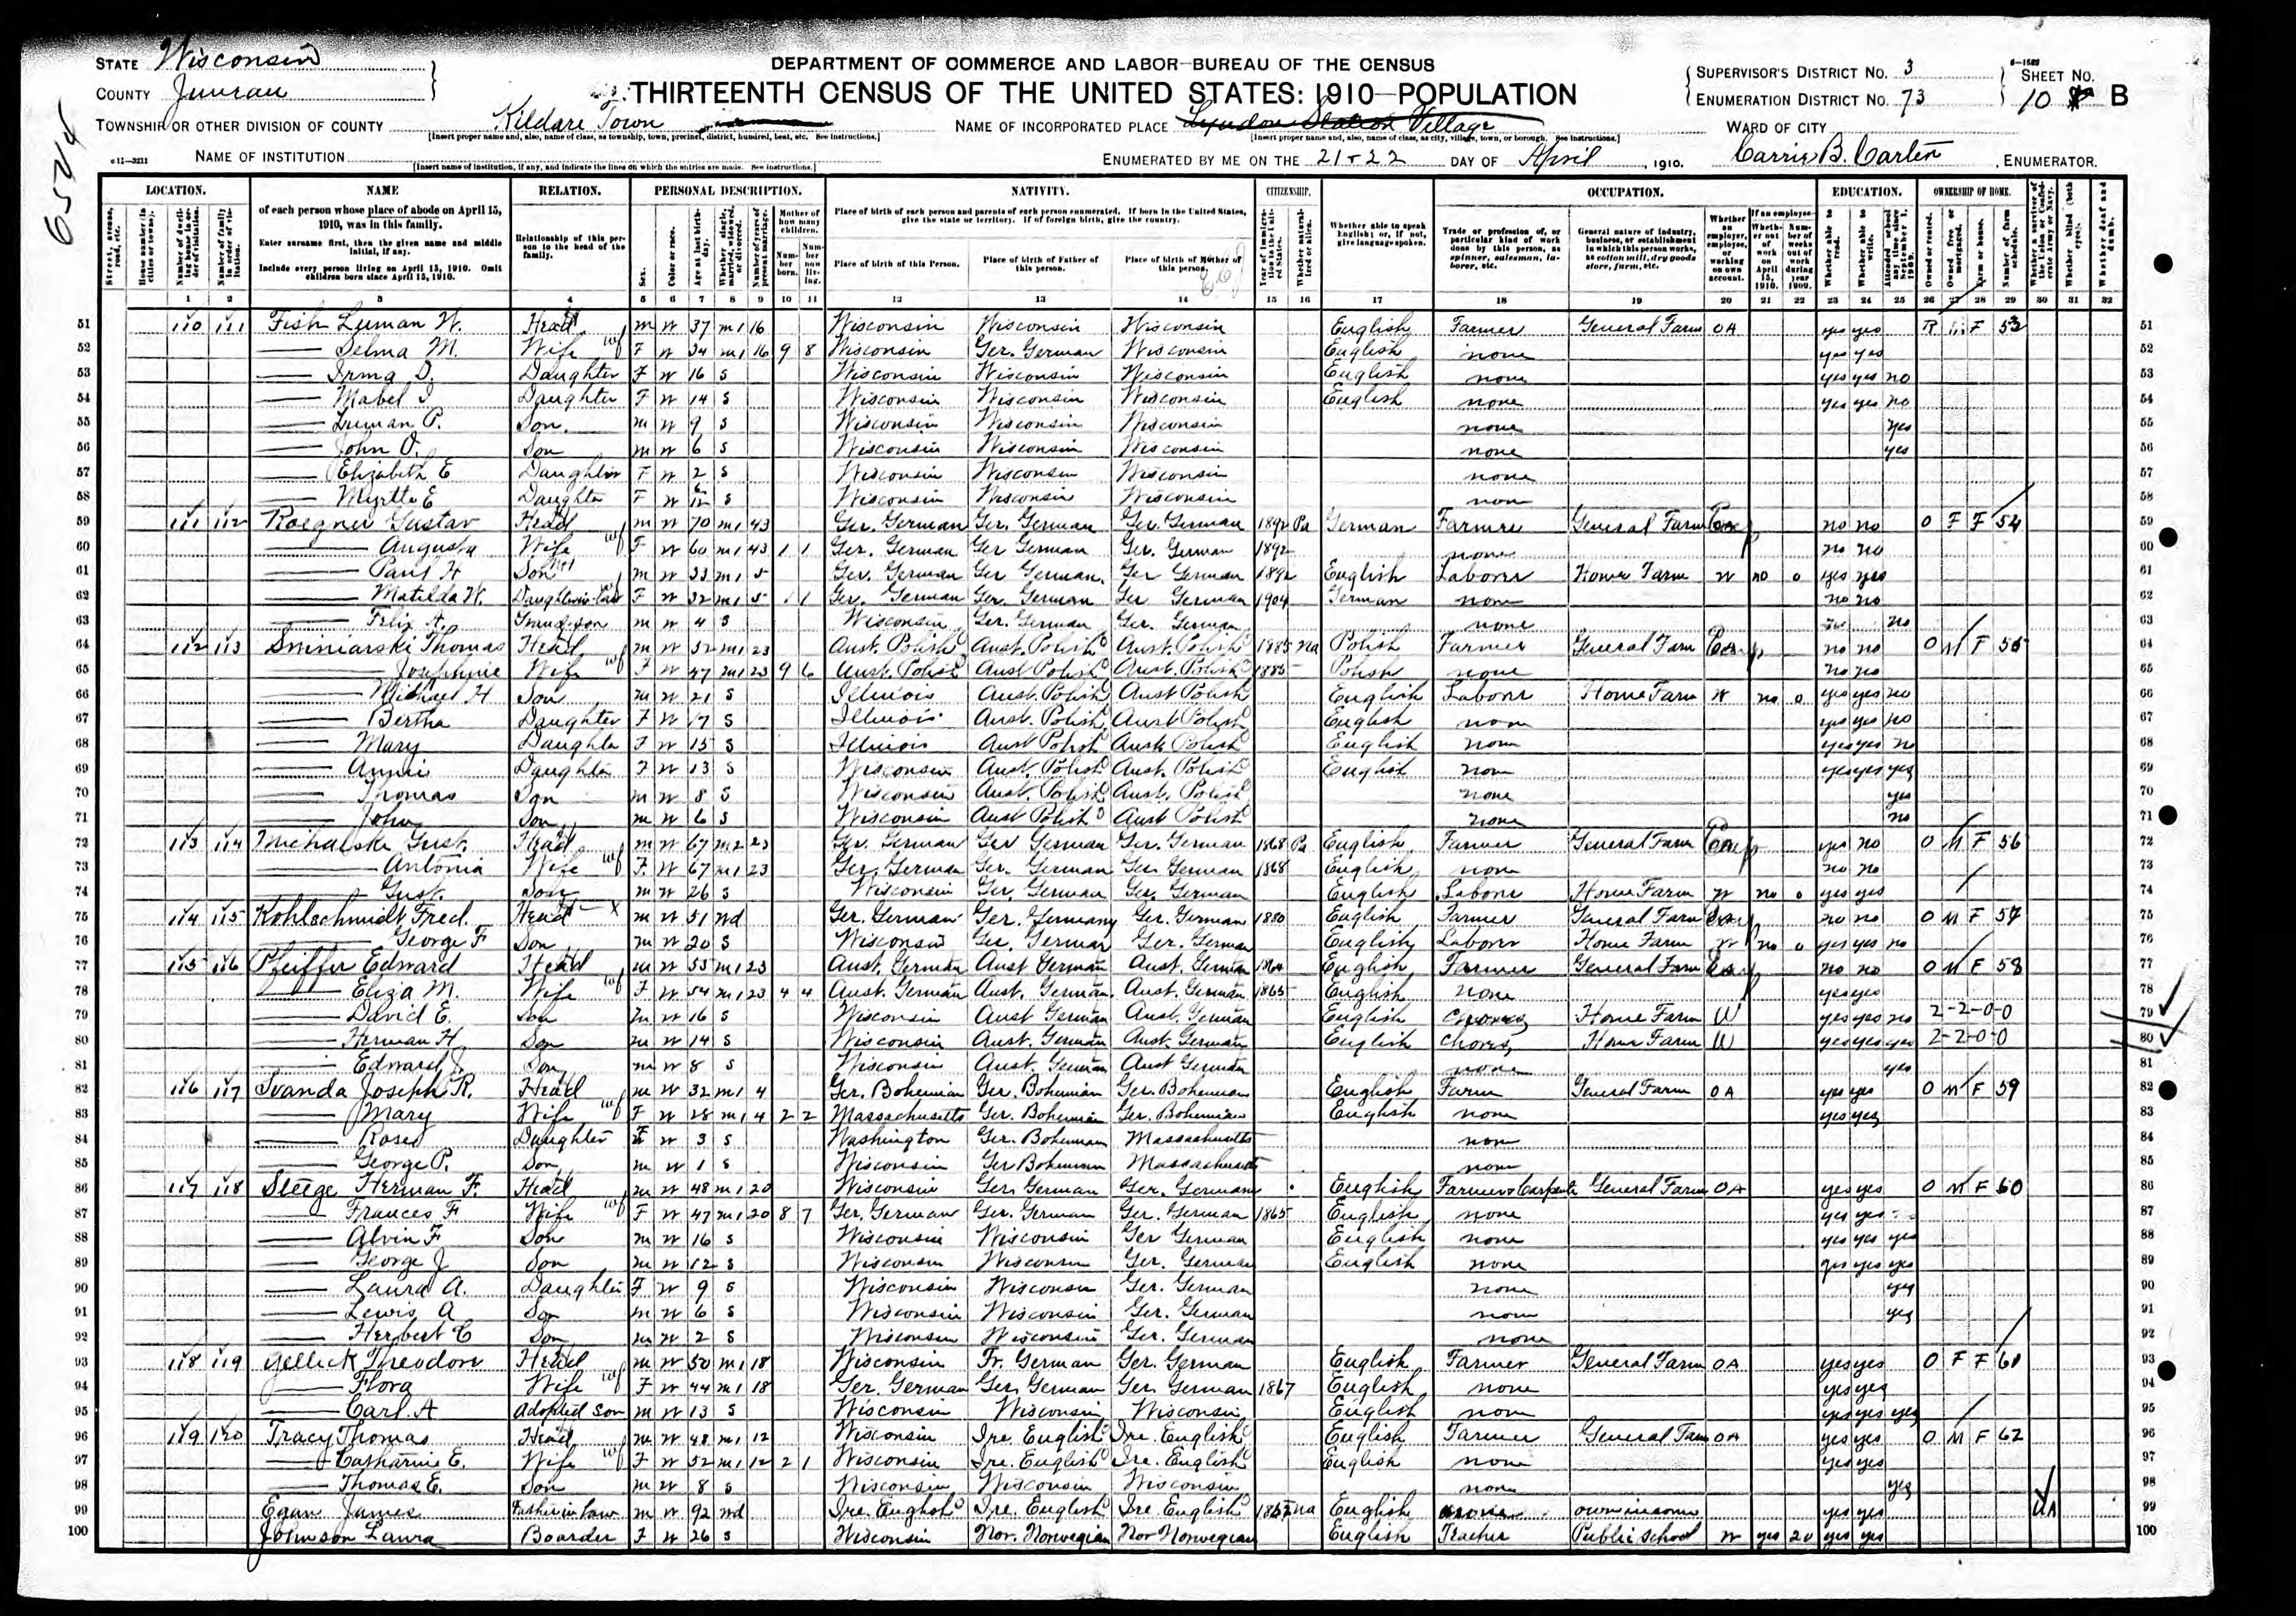 STATE Wisconsin
COUNTY Juneau
DEPARTMENT OF COMMERCE AND LABOR—BUREAU OF THE CENSUS
THIRTEENTH CENSUS OF THE UNITED STATES: 1910—POPULATION
SUPERVISOR'S DISTRICT NO. 3
ENUMERATION DISTRICT NO. 73
SHEET NO. 10 B
TOWNSHIP OR OTHER DIVISION OF COUNTY Kildare Town
NAME OF INCORPORATED PLACE Lyndon Station Village
WARD OF CITY
NAME OF INSTITUTION
ENUMERATED BY ME ON THE 21+22 DAY OF April, 1910. Carrie B. Carten, ENUMERATOR.
LOCATION. NAME RELATION. PERSONAL DESCRIPTION. NATIVITY. CITIZENSHIP. OCCUPATION. EDUCATION. OWNERSHIP OF HOME.
of each person whose place of abode on April 15, 1910, was in this family.
Enter surname first, then the given name and middle initial, if any.
Include every person living on April 15, 1910. Omit children born since April 15, 1910.
Relationship of this person to the head of the family.
Place of birth of each person and parents of each person enumerated. If born in the United States, give the state or territory. If of foreign birth, give the country.
Place of birth of this Person. Place of birth of Father of this person. Place of birth of Mother of this person.
Whether able to speak English; or, if not, give language spoken.
1 2 3 4 5 6 7 8 9 10 11 12 13 14 15 16 17 18 19 20 21 22 23 24 25 26 27 28 29 30 31 32
51 110 111 Fish Luman W. Head m W 37 m1 16 Wisconsin Wisconsin Wisconsin English Farmer General Farm OA yes yes R F 53 51
52 Selma M. Wife F W 34 m1 16 9 8 Wisconsin Ger. German Wisconsin English none yes yes 52
53 Irma D. Daughter F W 16 S Wisconsin Wisconsin Wisconsin English none yes yes no 53
54 Mabel I Daughter F W 14 S Wisconsin Wisconsin Wisconsin English none yes yes no 54
55 Luman P. Son m W 9 S Wisconsin Wisconsin Wisconsin none yes 55
56 John O. Son m W 6 S Wisconsin Wisconsin Wisconsin none yes 56
57 Elizabeth E Daughter F W 2 S Wisconsin Wisconsin Wisconsin none 57
58 Myrtle E Daughter F W S Wisconsin Wisconsin Wisconsin none 58
59 111 112 Roegner Gustav Head m W 70 m1 43 Ger. German Ger. German Ger. German 1892 Pa German Farmer General Farm no no O F F 54 59
60 Augusta Wife F W 60 m1 43 1 1 Ger. German Ger German Ger. German 1892 none no no 60
61 Paul H Son m W 33 m1 5 Ger. German Ger German Ger German 1892 English Laborer Home Farm W no 0 yes yes 61
62 Matilda W. Daughter in law F W 32 m1 5 1 1 Ger. German Ger. German Ger German 1904 German none no no 62
63 Felix A. Grandson m W 4 S Wisconsin Ger. German Ger. German none no 63
64 112 113 Sminiarski Thomas Head m W 52 m1 23 Aust. Polish Aust. Polish Aust. Polish 1885 Na Polish Farmer General Farm no no O M F 55 64
65 Josephine Wife F W 47 m1 23 9 6 Aust. Polish Aust Polish Aust. Polish 1885 Polish none no no 65
66 Michael H Son m W 21 S Illinois Aust. Polish Aust Polish English Laborer Home Farm W no 0 yes yes no 66
67 Bertha Daughter F W 17 S Illinois Aust. Polish Aust Polish English none yes yes no 67
68 Mary Daughter F W 15 S Illinois Aust Polish Aust Polish English none yes yes no 68
69 Annie Daughter F W 13 S Wisconsin Aust. Polish Aust. Polish English none yes yes yes 69
70 Thomas Son m W 8 S Wisconsin Aust. Polish Aust. Polish none yes 70
71 John Son m W 6 S Wisconsin Aust Polish Aust Polish none no 71
72 113 114 Michalske Gust. Head m W 67 m2 23 Ger. German Ger German Ger. German 1868 Pa English Farmer General Farm yes no O M F 56 72
73 Antonia Wife F. W 67 m1 23 Ger. German Ger. German Ger German 1868 English none no no 73
74 Gust. Son m W 26 S Wisconsin Ger. German Ger. German English Laborer Home Farm W no 0 yes yes 74
75 114 115 Kohlschmidt Fred. Head m W 51 Wd Ger. German Ger. Germany Ger. German 1880 English Farmer General Farm no no O M F 57 75
76 George F Son m W 20 S Wisconsin Ger. German Ger. German English Laborer Home Farm W no 0 yes yes no 76
77 115 116 Pfeiffer Edward Head m W 55 m1 23 Aust. German Aust German Aust. German English Farmer General Farm no no O M F 58 77
78 Eliza M. Wife F W 54 m1 23 4 4 Aust. German Aust. German Aust. German 1865 English none yes yes 78
79 David E. Son m W 16 S Wisconsin Aust German Aust. German English Chores Home Farm W yes yes no 2-2-0-0 79
80 Herman H. Son m W 14 S Wisconsin Aust. German Aust. German English Chores Home Farm W yes yes yes 2-2-0-0 80
81 Edward J. Son m W 8 S Wisconsin Aust. German Aust German none yes 81
82 116 117 Svanda Joseph R. Head m W 32 m1 4 Ger. Bohemian Ger. Bohemian Ger. Bohemian English Farm General Farm OA yes yes O M F 59 82
83 Mary Wife F W 28 m1 4 2 2 Massachusetts Ger. Bohemian Ger. Bohemian English none yes yes 83
84 Rose Daughter F W 3 S Washington Ger. Bohemian Massachusetts none 84
85 George P. Son m W 1 S Wisconsin Ger Bohemian Massachusetts none 85
86 117 118 Steege Herman F. Head m W 48 m1 20 Wisconsin Ger. German Ger. German English Farmer & Carpenter General Farm OA yes yes O M F 60 86
87 Frances F Wife F W 47 m1 20 8 7 Ger. German Ger. German Ger. German 1865 English none yes yes 87
88 Alvin F. Son m W 16 S Wisconsin Wisconsin Ger German English none yes yes yes 88
89 George J Son m W 12 S Wisconsin Wisconsin Ger. German English none yes yes yes 89
90 Laura A. Daughter F W 9 S Wisconsin Wisconsin Ger. German none yes 90
91 Lewis A Son m W 6 S Wisconsin Wisconsin Ger. German none yes 91
92 Herbert C Son m W 2 S Wisconsin Wisconsin Ger. German none 92
93 118 119 Gellick Theodore Head m W 50 m1 18 Wisconsin Fr. German Ger. German English Farmer General Farm OA yes yes O F F 61 93
94 Flora Wife F W 44 m1 18 Ger. German Ger. German Ger. German 1867 English none yes yes 94
95 Carl A Adopted Son m W 13 S Wisconsin Wisconsin Wisconsin English none yes yes yes 95
96 119 120 Tracy Thomas Head m W 48 m1 12 Wisconsin Ire. English Ire. English English Farmer General Farm OA yes yes O M F 62 96
97 Catharine E. Wife F W 52 m1 12 2 1 Wisconsin Ire. English Ire. English English none yes yes 97
98 Thomas E. Son m W 8 S Wisconsin Wisconsin Wisconsin none yes 98
99 Egan James Father in law m W 92 Wd Ire. English Ire. English Ire English Na English none own income yes yes UA 99
100 Johnson Laura Boarder F W 26 S Wisconsin Nor. Norwegian Nor Norwegian English Teacher Public School W yes 20 yes yes 100